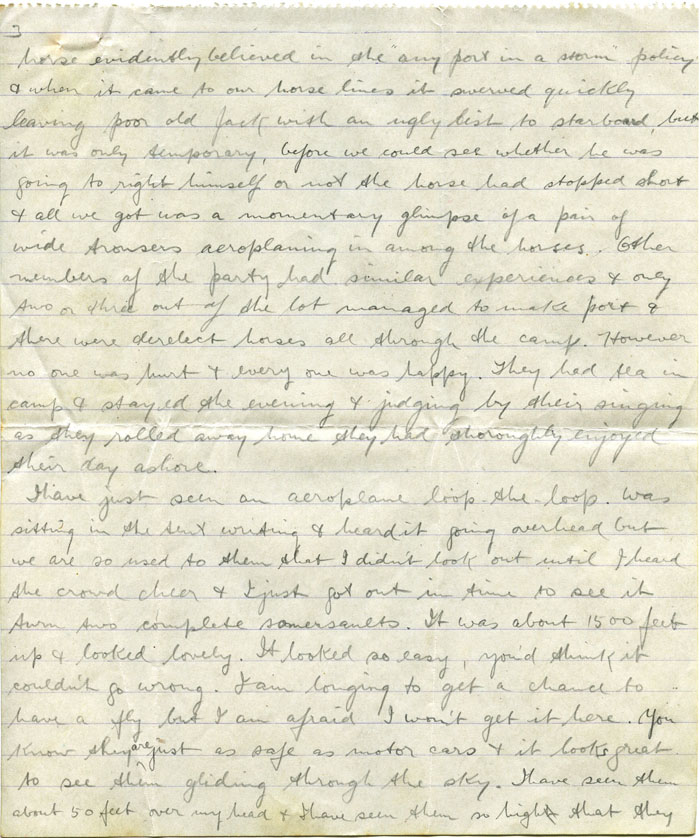 3
horse evidently believed in the "any port in a storm" policy
& when it came to our horse lines it swerved quickly
leaving poor old Jack with an ugly list to starboard, but
it was only temporary, before we could see whether he was
going to right himself or not the horse had stopped short
& all we got was a momentary glimpse of a pair of
wide trousers aeroplaning in among the horses. Other
members of the party had similar experiences & only
two or three out of the lot managed to make port &
there were derelect horses all through the camp. However
no one was hurt & every one was happy. They had tea in
camp & stayed the evening & judging by their singing
as they rolled away home they had thoroughly enjoyed
their day ashore.
I have just seen an aeroplane loop-the-loop. Was
sitting in the tent writing & heard it going overhead but
we are so used to them that I didn't look out until I heard
the crowd cheer & I just got out in time to see it
turn two complete somersaults. It was about 1500 feet
up & looked lovely. It looked so easy, you'd think it
couldn't go wrong. I am longing to get a chance to
have a fly but I am afraid I won't get it here. You
know they are just as safe as motor cars & it looks great
to see them gliding through the sky. I have seen them
about 50 feet over my head & I have seen them so high that they